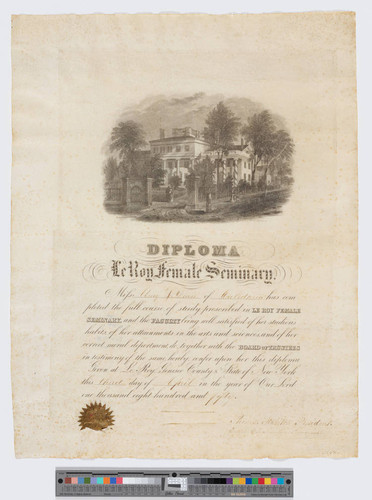 DIPLOMA
Le Roy Female Seminary.
Miss of has com
pleted the full course of study prescribed in LE ROY FEMALE
SEMINARY, and the FACULTY being well satisfied of her studious
habits of her attainments in the arts and sciences and of her
correct moral deportment do together with the BOARD OF TRUSTEES
in testimony of the same hereby confer upon her this diploma
Given at Le Roy Genesee County & State of New York
this day of April in the year of Our Lord
one thousand eight hundred and